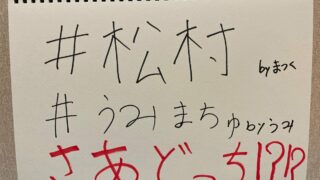 #松村 byまつく
#うみまちゅbyうみ
さあどっち!?!?